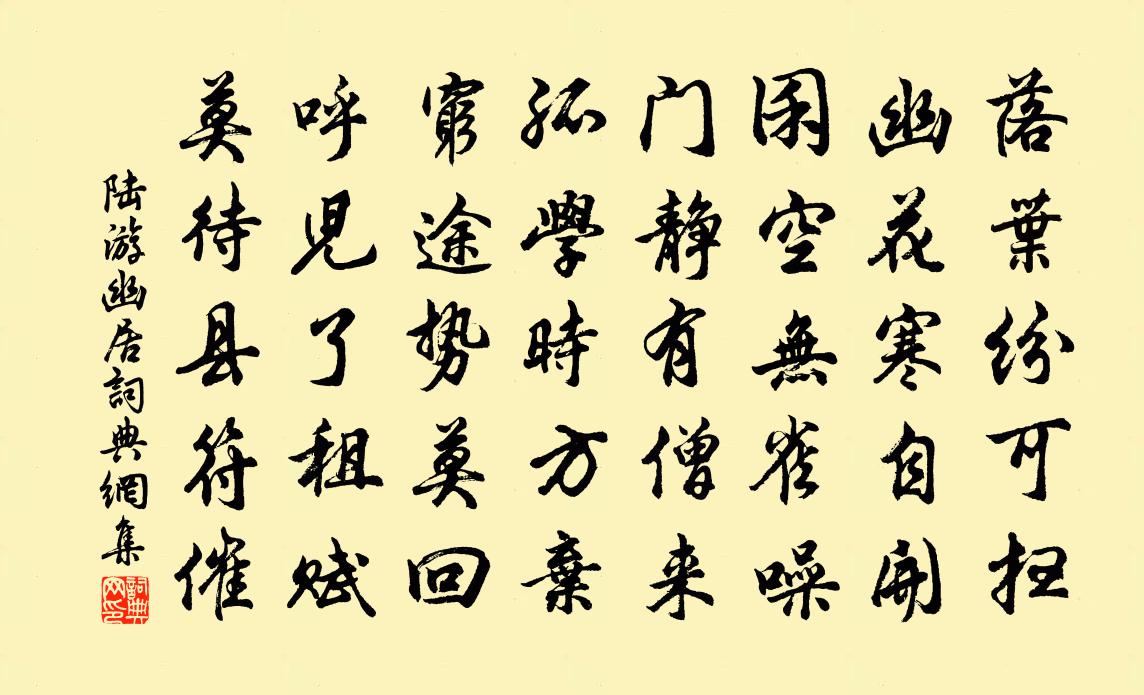 落葉紛可扫
幽花寒自開
囷空無雀噪
门静有僧来
孤學時方棄
窮途势莫回
呼児了租赋
莫待县符催
陆游幽居詞典網集
詞典
网印